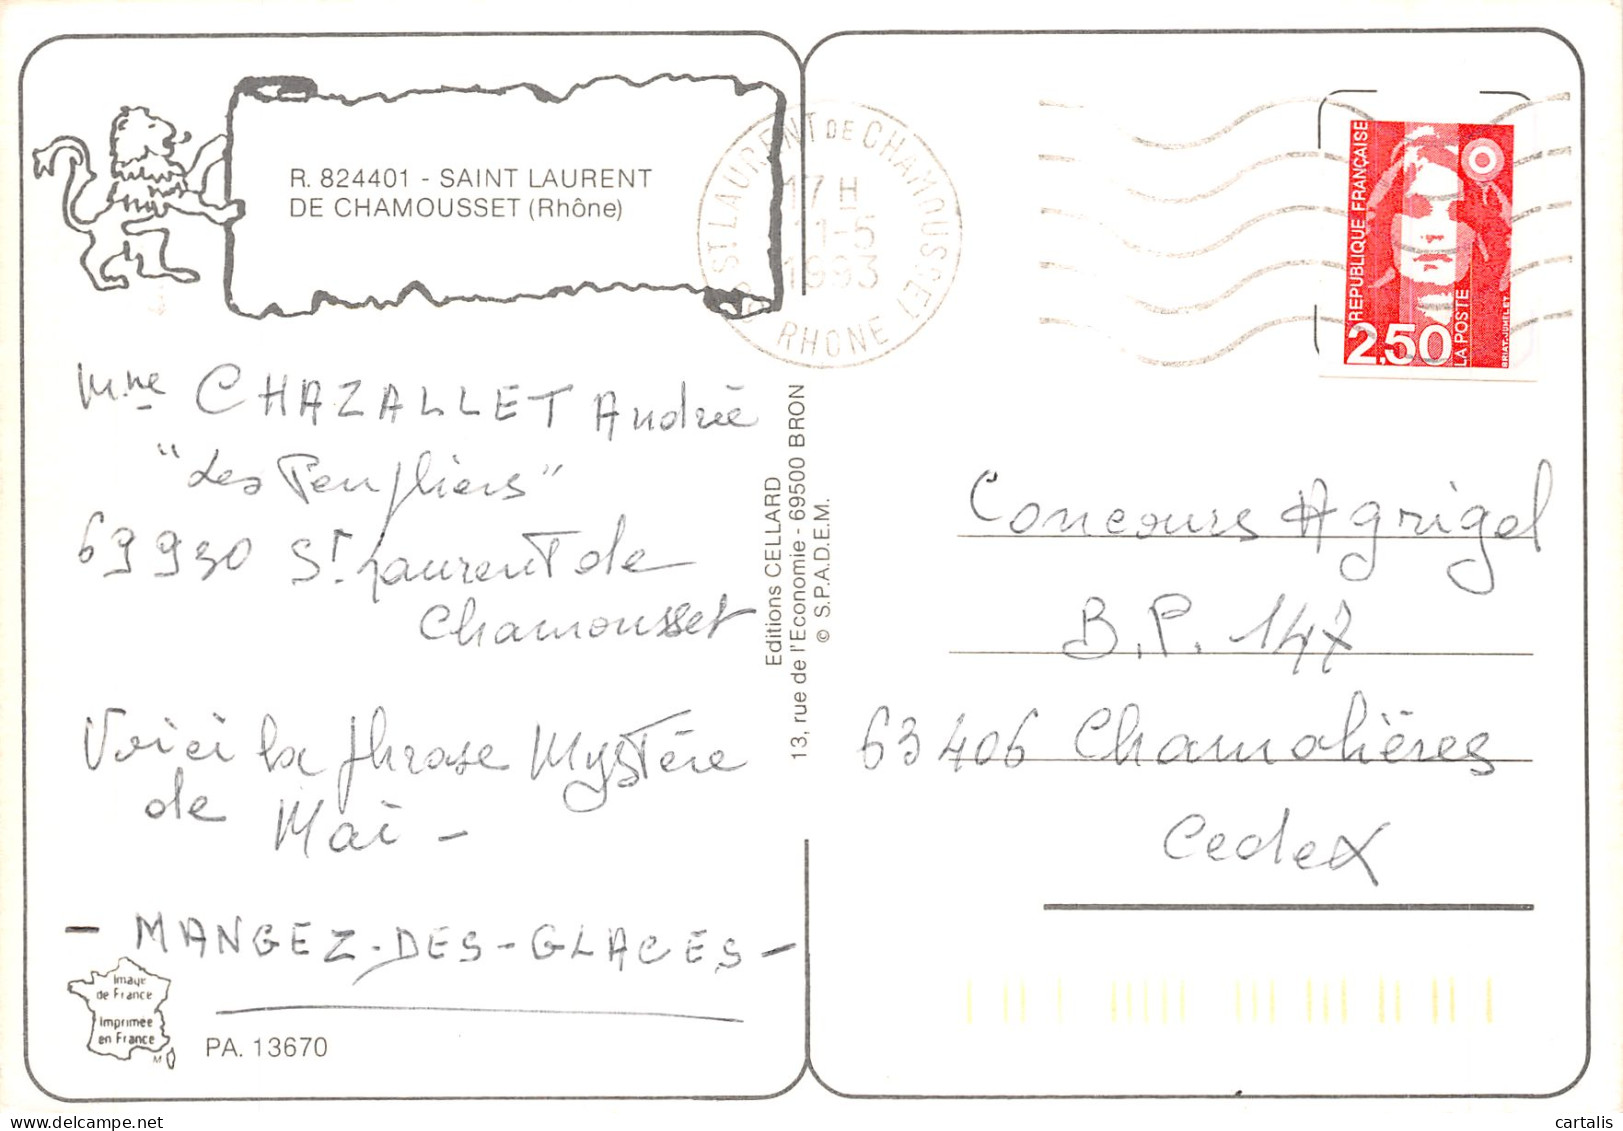 R. 824401 - SAINT LAURENT
DE CHAMOUSSET (Rhône)
69 ST LAURENT DE CHAMOUSSET
17 H
11-5
1993
RHONE
REPUBLIQUE FRANÇAISE
2,50
LA POSTE
BRIAT-JUMELET
Mme CHAZALLET Andrée
"Les Peupliers"
69930 St. Laurent de
Chamousset
Voici la phrase Mystère
de
Mai -
- MANGEZ-DES-GLACES -
Editions CELLARD
13, rue de l'Economie - 69500 BRON
© S.P.A.D.E.M.
Concours Agrigel
B.P. 147
63406 Chamalières
Cedex
Image
de France
Imprimée
en France
M
PA. 13670
cartalis